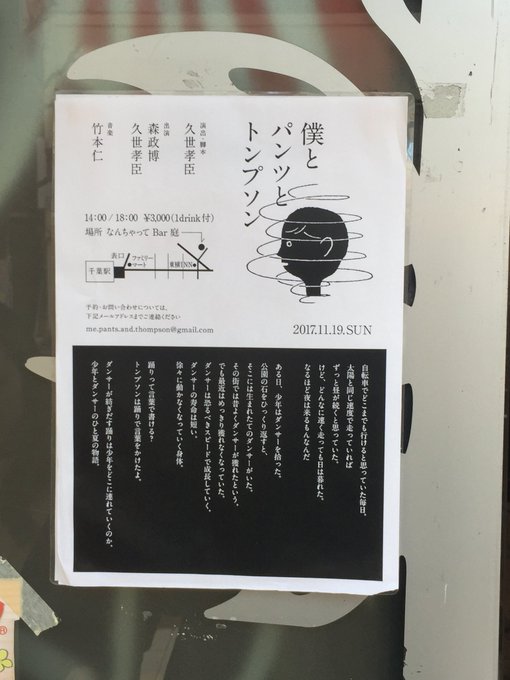 僕と
パンツと
トンプソン
演出・脚本
久世孝臣
出演
森政博
久世孝臣
音楽
竹本仁
14:00 / 18:00 ¥3,000(1drink付)
場所 なんちゃって Bar 庭
表口
ファミリー
マート
東横INN
千葉駅
予約・お問い合わせについては、
下記メールアドレスまでご連絡ください
me.pants.and.thompson@gmail.com
2017.11.19.SUN
自転車でどこまでも行けると思っていた毎日。
太陽と同じ速度で走っていれば
ずっと昼が続くと思っていた。
けど、どんなに速く走っても日は暮れた。
なるほど夜は来るもんなんだ
ある日、少年はダンサーを拾った。
公園の石をひっくり返すと、
そこには生まれたてのダンサーがいた。
その街では昔よくダンサーが獲れたという。
でも最近はめっきり獲れなくなっていた。
ダンサーは恐るべきスピードで成長していく。
ダンサーの寿命は短い。
徐々に動かなくなっていく身体。
踊りって言葉で書ける?
トンプソンは踊りで言葉をかけたよ。
ダンサーが紡ぎだす踊りは少年をどこに連れていくのか。
少年とダンサーのひと夏の物語。